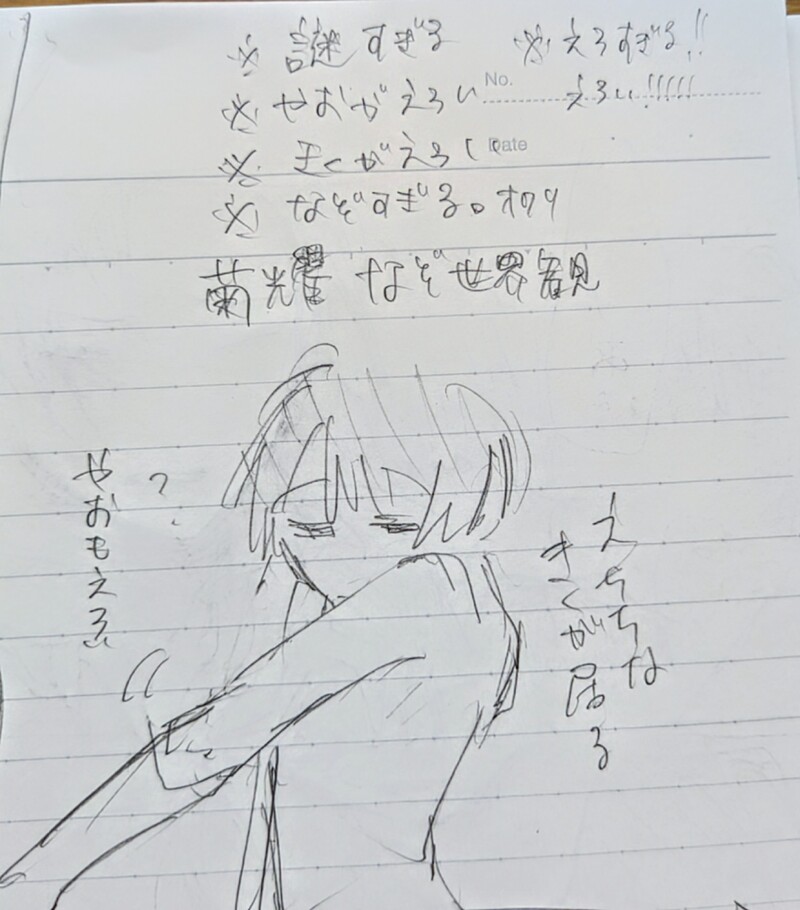 ※ 謎すぎる ※えろすぎる!!
※ やおがえろい えろい!!!!!
No.
※ きくがえろい
Date
※ なぞすぎる。オワリ
菊耀 なぞ世界観
えちちな
きくが居る
?
やおもえろい